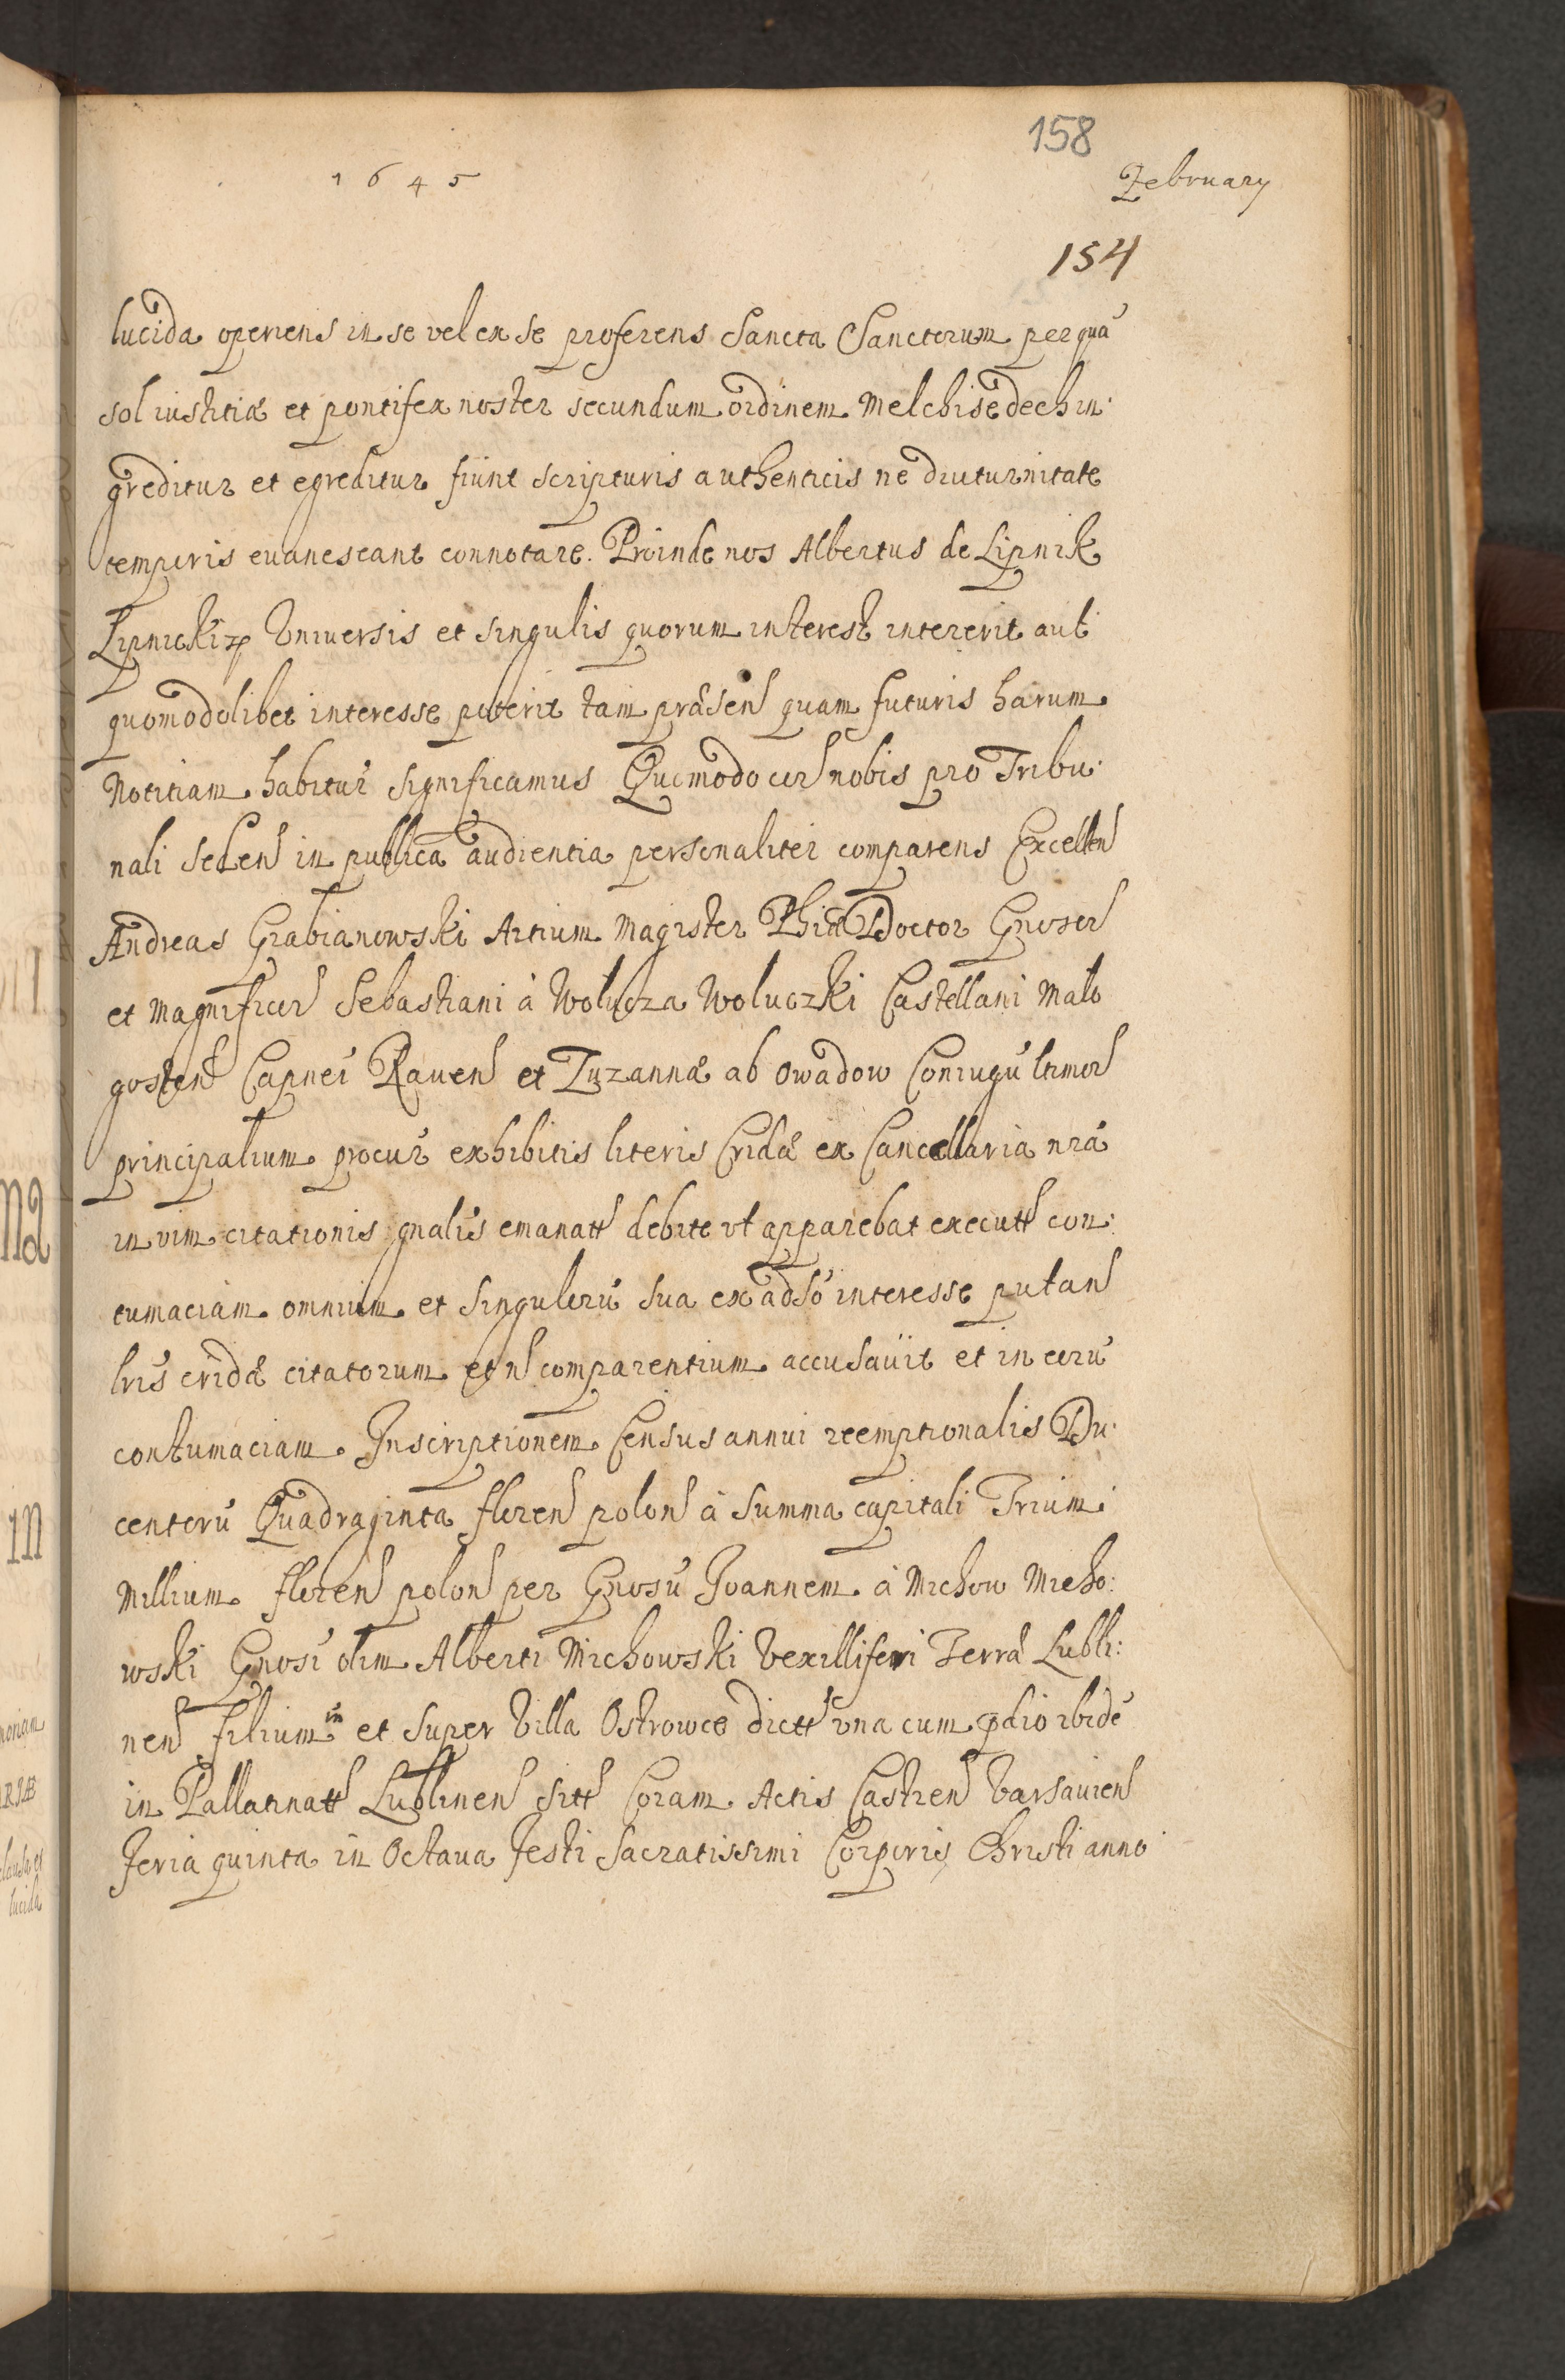 158
1645 February
154
lucida operiens in se vel ex se proferens Sancta Sanctorum per quā
sol iustitiæ et pontifex noster secundum ordinem Melchisedech in:
greditur et egreditur fiunt scripturis authenticis ne diuturnitate
temporis evanescant connotare. Proinde nos Albertus de Lipnik
Lipnicki Universis et singulis quorum interest intererit aut
quomodolibet interesse poterit tam præsen quam futuris harum
Notitiam habitur̄ significamus Quomodo cor nobis pro Tribu:
nali seden in publica audientia personaliter comparens Excellen
Andreas Grabianowski Artium Magister Phiæ Doctor Gnosor
et Magnificor Sebastiani à Wolucza Woluczki Castellani Malo
gosten Capnei Raven et Zuzannæ ab Owadow Coniugū ltimor
principalium procur̄ exhibitis literis Cridæ ex Cancellaria nrā
in vim citationis gnalis emanatt debite ut apparebat executt con:
tumaciam omnium et singulorū sua ex adso interesse putan
lris cridæ citatorum et n comparentium accusavit et in eorū
contumaciam Inscriptionem Census annui reemptionalis Du:
centorū Quadraginta floren polon à summa capitali Trium
Millium floren polon per Gnosū Joannem à Michow Micho:
wski Gnosi olim Alberti Michowski Vexilliferi Terræ Lubli:
nen filium in et super Villa Ostrowce dictt una cum pdio ibidē
in Pallatinatt Lublinen sitt Coram Actis Castren Varsavien
feria quinta in Octava festi Sacratissimi Corporis Christi anno